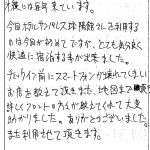 様には毎年来ています。
今回ホテルサンパレス球陽館さんを利用する
のは今回が初めてですが、とても気分良く
快適に宿泊する事が出来ました。
チェックイン前にスマートフォンが壊れてしまい
お店を教えて頂きまた、地図まで
詳しくフロントの方々が教えてくれて大変
助かりました。ありがとうございました。
また利用させて頂きます。